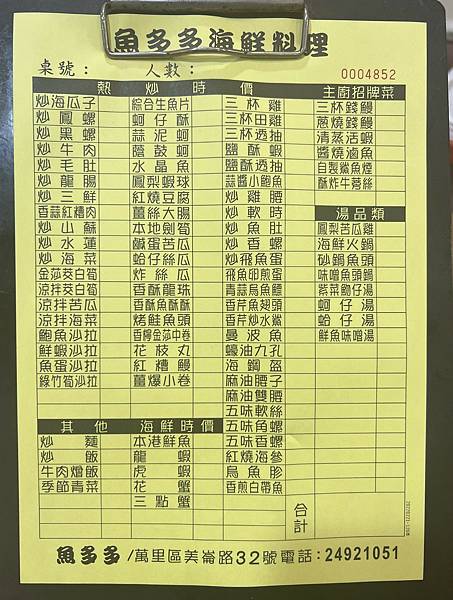 魚多多海鮮料理
桌號： 人數： 0004852
熱炒時價
炒海瓜子
炒鳳螺
炒黑螺
炒牛肉
炒毛肚
炒龍腸
炒三鮮
香蒜紅糟肉
炒山蘇
炒水蓮
炒海菜
金莎茭白筍
涼拌茭白筍
涼拌苦瓜
涼拌海菜
鮑魚沙拉
鮮蝦沙拉
魚蛋沙拉
綠竹筍沙拉
綜合生魚片
蚵仔酥
蒜泥蚵
蔭鼓蚵
水晶魚
鳳梨蝦球
紅燒豆腐
薑絲大腸
本地劍筍
鹹蛋苦瓜
蛤仔絲瓜
炸絲瓜
香酥龍珠
香酥魚酥酥
烤鮭魚頭
香檸金莎中卷
花枝丸
紅糟鰻
薑爆小卷
三杯雞
三杯田雞
三杯透抽
鹽酥蝦
鹽酥透抽
蒜醬小鮑魚
炒雞腰
炒軟時
炒魚肚
炒香螺
炒飛魚蛋
飛魚卵煎蛋
青蒜烏魚鰾
香芹魚翅頭
香芹炒水鯊
曼波魚
蠔油九孔
海鋼盔
麻油腰子
麻油雙腰
五味軟絲
五味角螺
五味香螺
紅燒海參
烏魚胗
香煎白帶魚
主廚招牌菜
三杯錢鰻
蔥燒錢鰻
清蒸活蝦
醬燒滷魚
自製鯊魚煙
酥炸牛蒡絲
湯品類
鳳梨苦瓜雞
海鮮火鍋
砂鍋魚頭
味噌魚頭鍋
紫菜魩仔湯
蚵仔湯
蛤仔湯
鮮魚味噌湯
其他
炒麵
炒飯
牛肉燴飯
季節青菜
海鮮時價
本港鮮魚
龍蝦
虎蝦
花蟹
三點蟹
合計
魚多多/萬里區美崙路32號電話：24921051